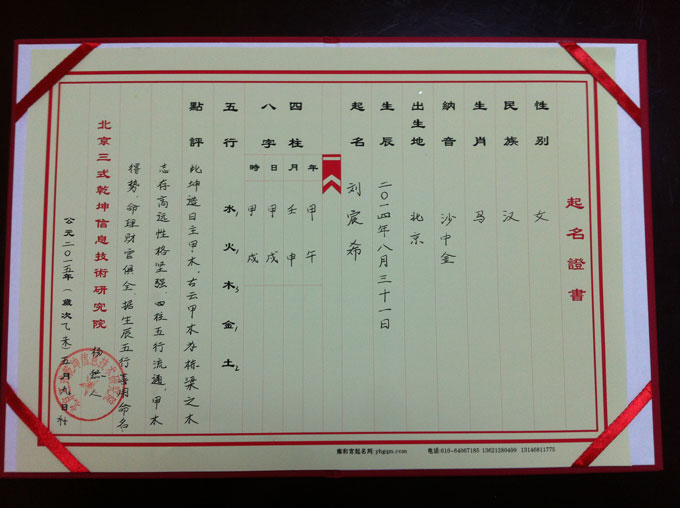 起名證書
性别 女
民族 汉
生肖 马
納音 沙中金
出生地 北京
生辰 二〇一四年八月三十一日
起名 刘宸希
四柱 年 月 日 時
八字 甲午 壬申 甲戌 甲戌
五行 水1 火1 木3 金1 土2
點評 此坤造日主甲木，古云甲木为栋梁之木
志存高远性格坚强，四柱五行流通，甲木
得势，命理财官俱全，据生辰五行喜用命名
北京三式乾坤信息技術研究院
杨 人
公元二〇一五年（歲次乙未）五月九日
雍和宫起名网:yhgqm.com 电话:010-64067185 13621280409 13146811775